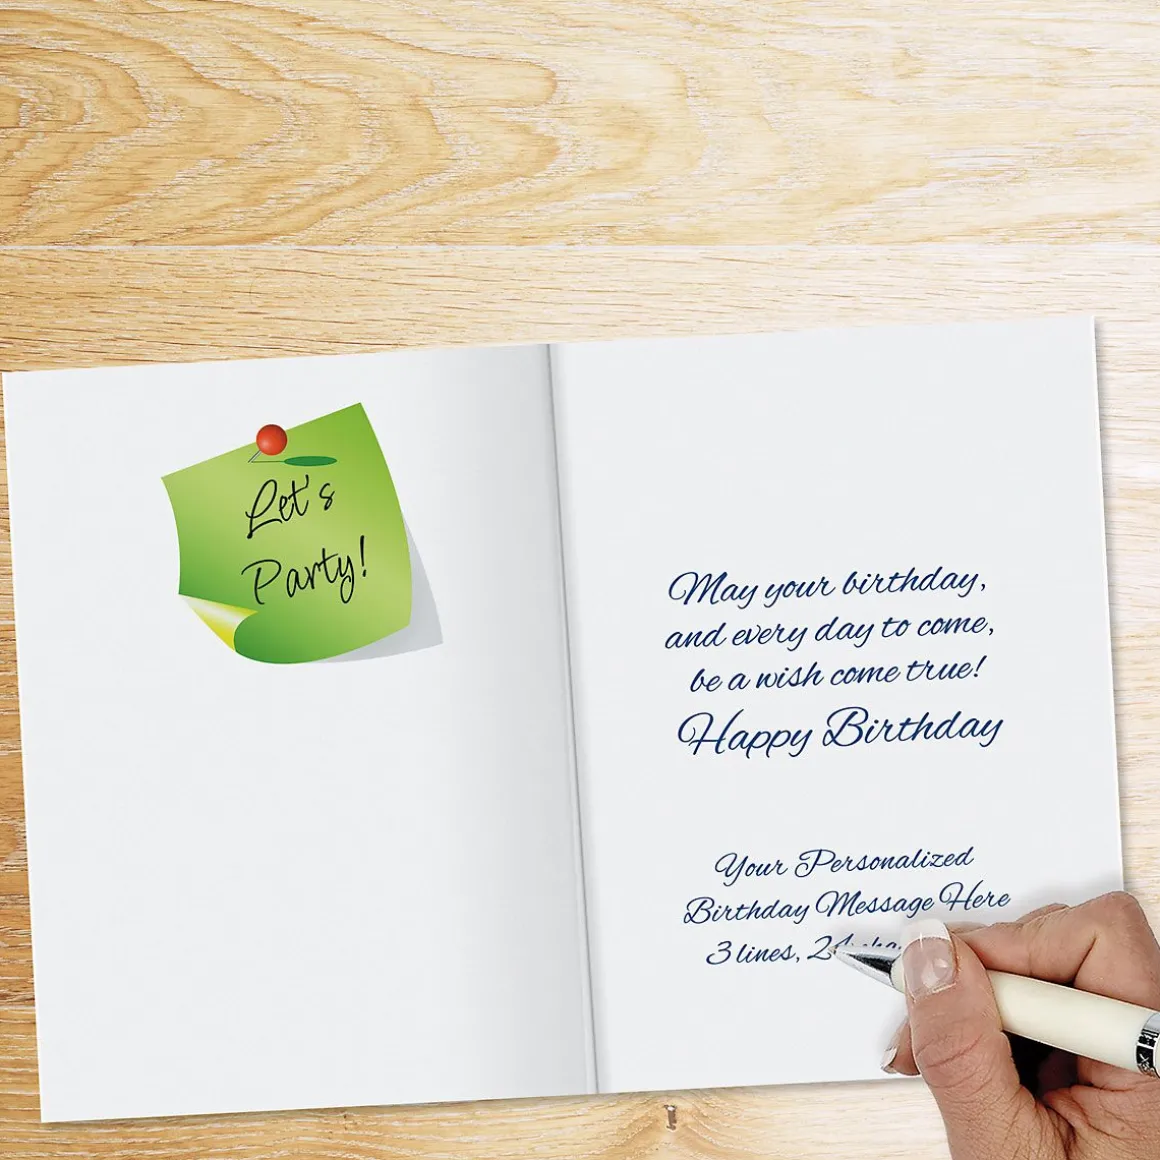 Let's
Party!
May your birthday,
and every day to come,
be a wish come true!
Happy Birthday
Your Personalized
Birthday Message Here
3 lines, 24